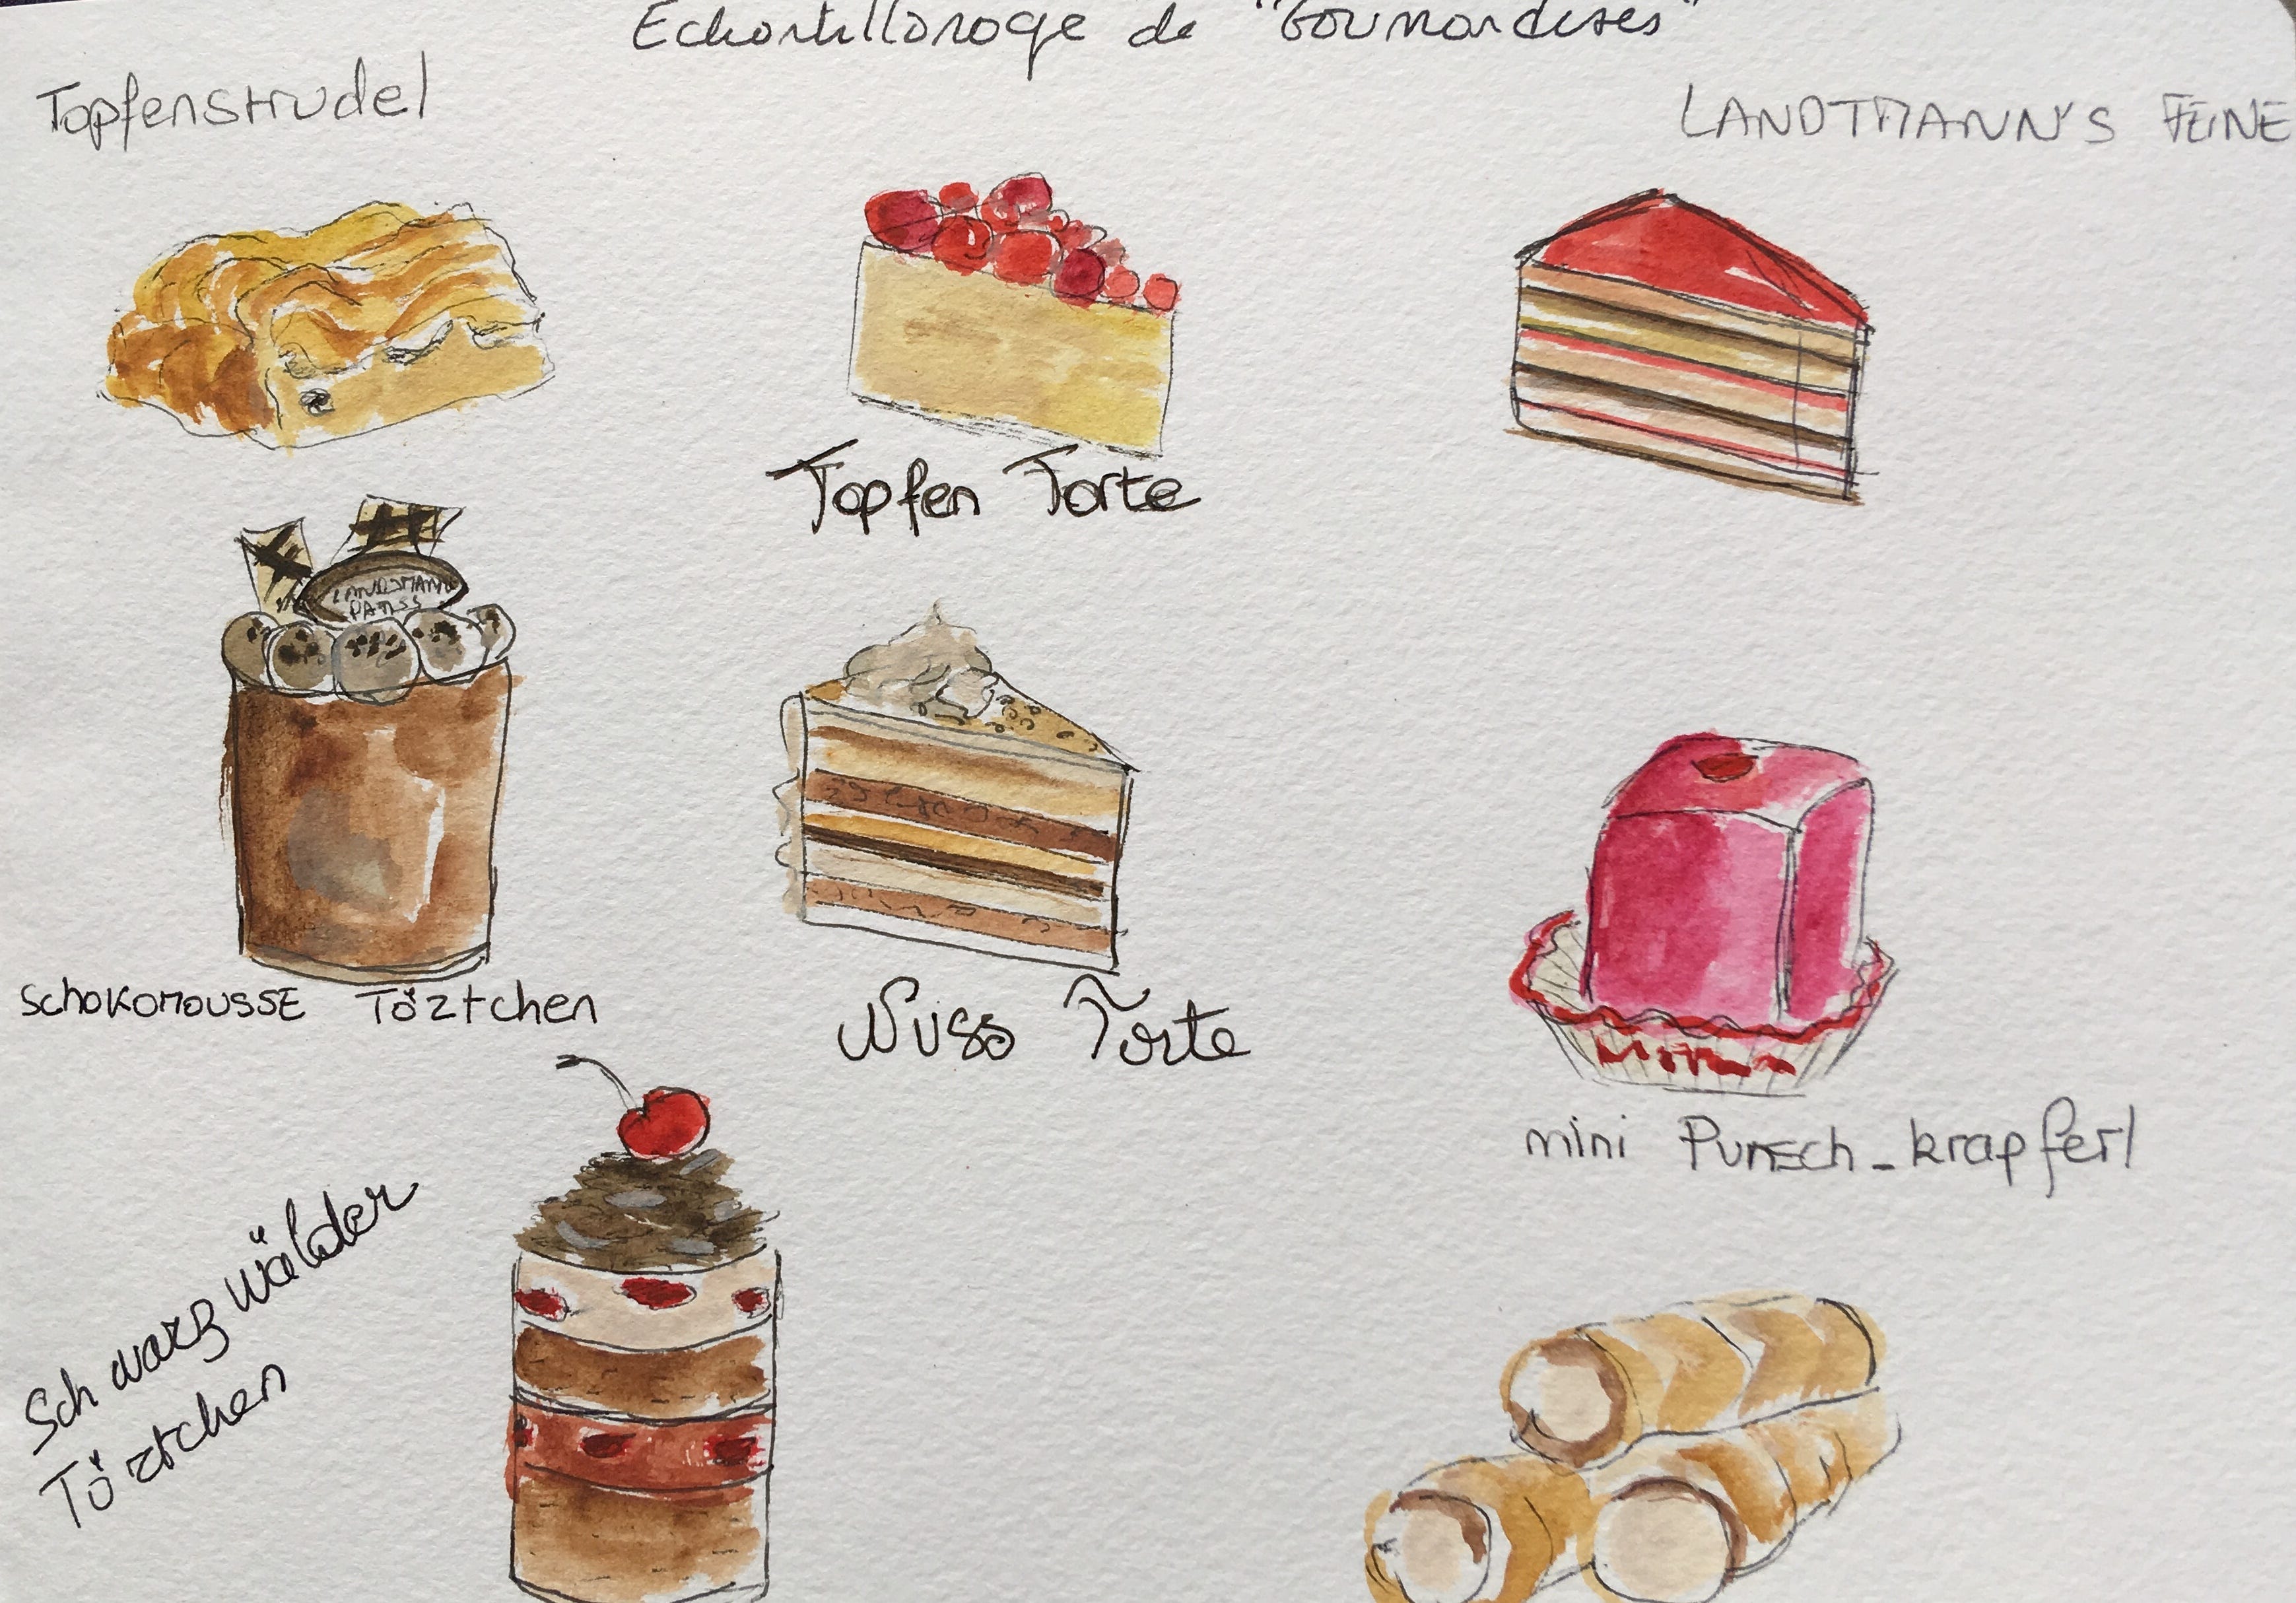 Echantillonage de "Gourmandises"
Topfenstrudel
LANDTMANN'S FEINE
Topfen Torte
LANDTMANN
PATISS
SCHOKOMOUSSE Töztchen
Nuss Torte
mini Punsch-krapferl
Schwarzwälder
Töztchen